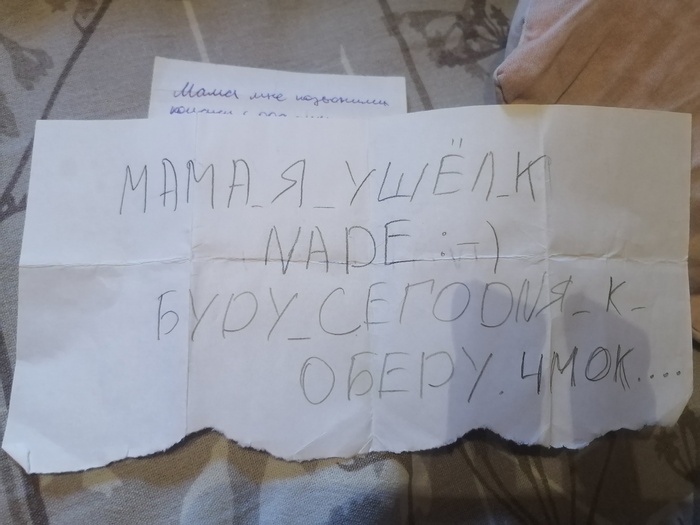 Мама мне позвонили
МАМА_Я_УШЁЛ_К
NАDE :-)
БУDУ_СЕГОDNЯ_К_
ОБЕDУ. ЧМОК....